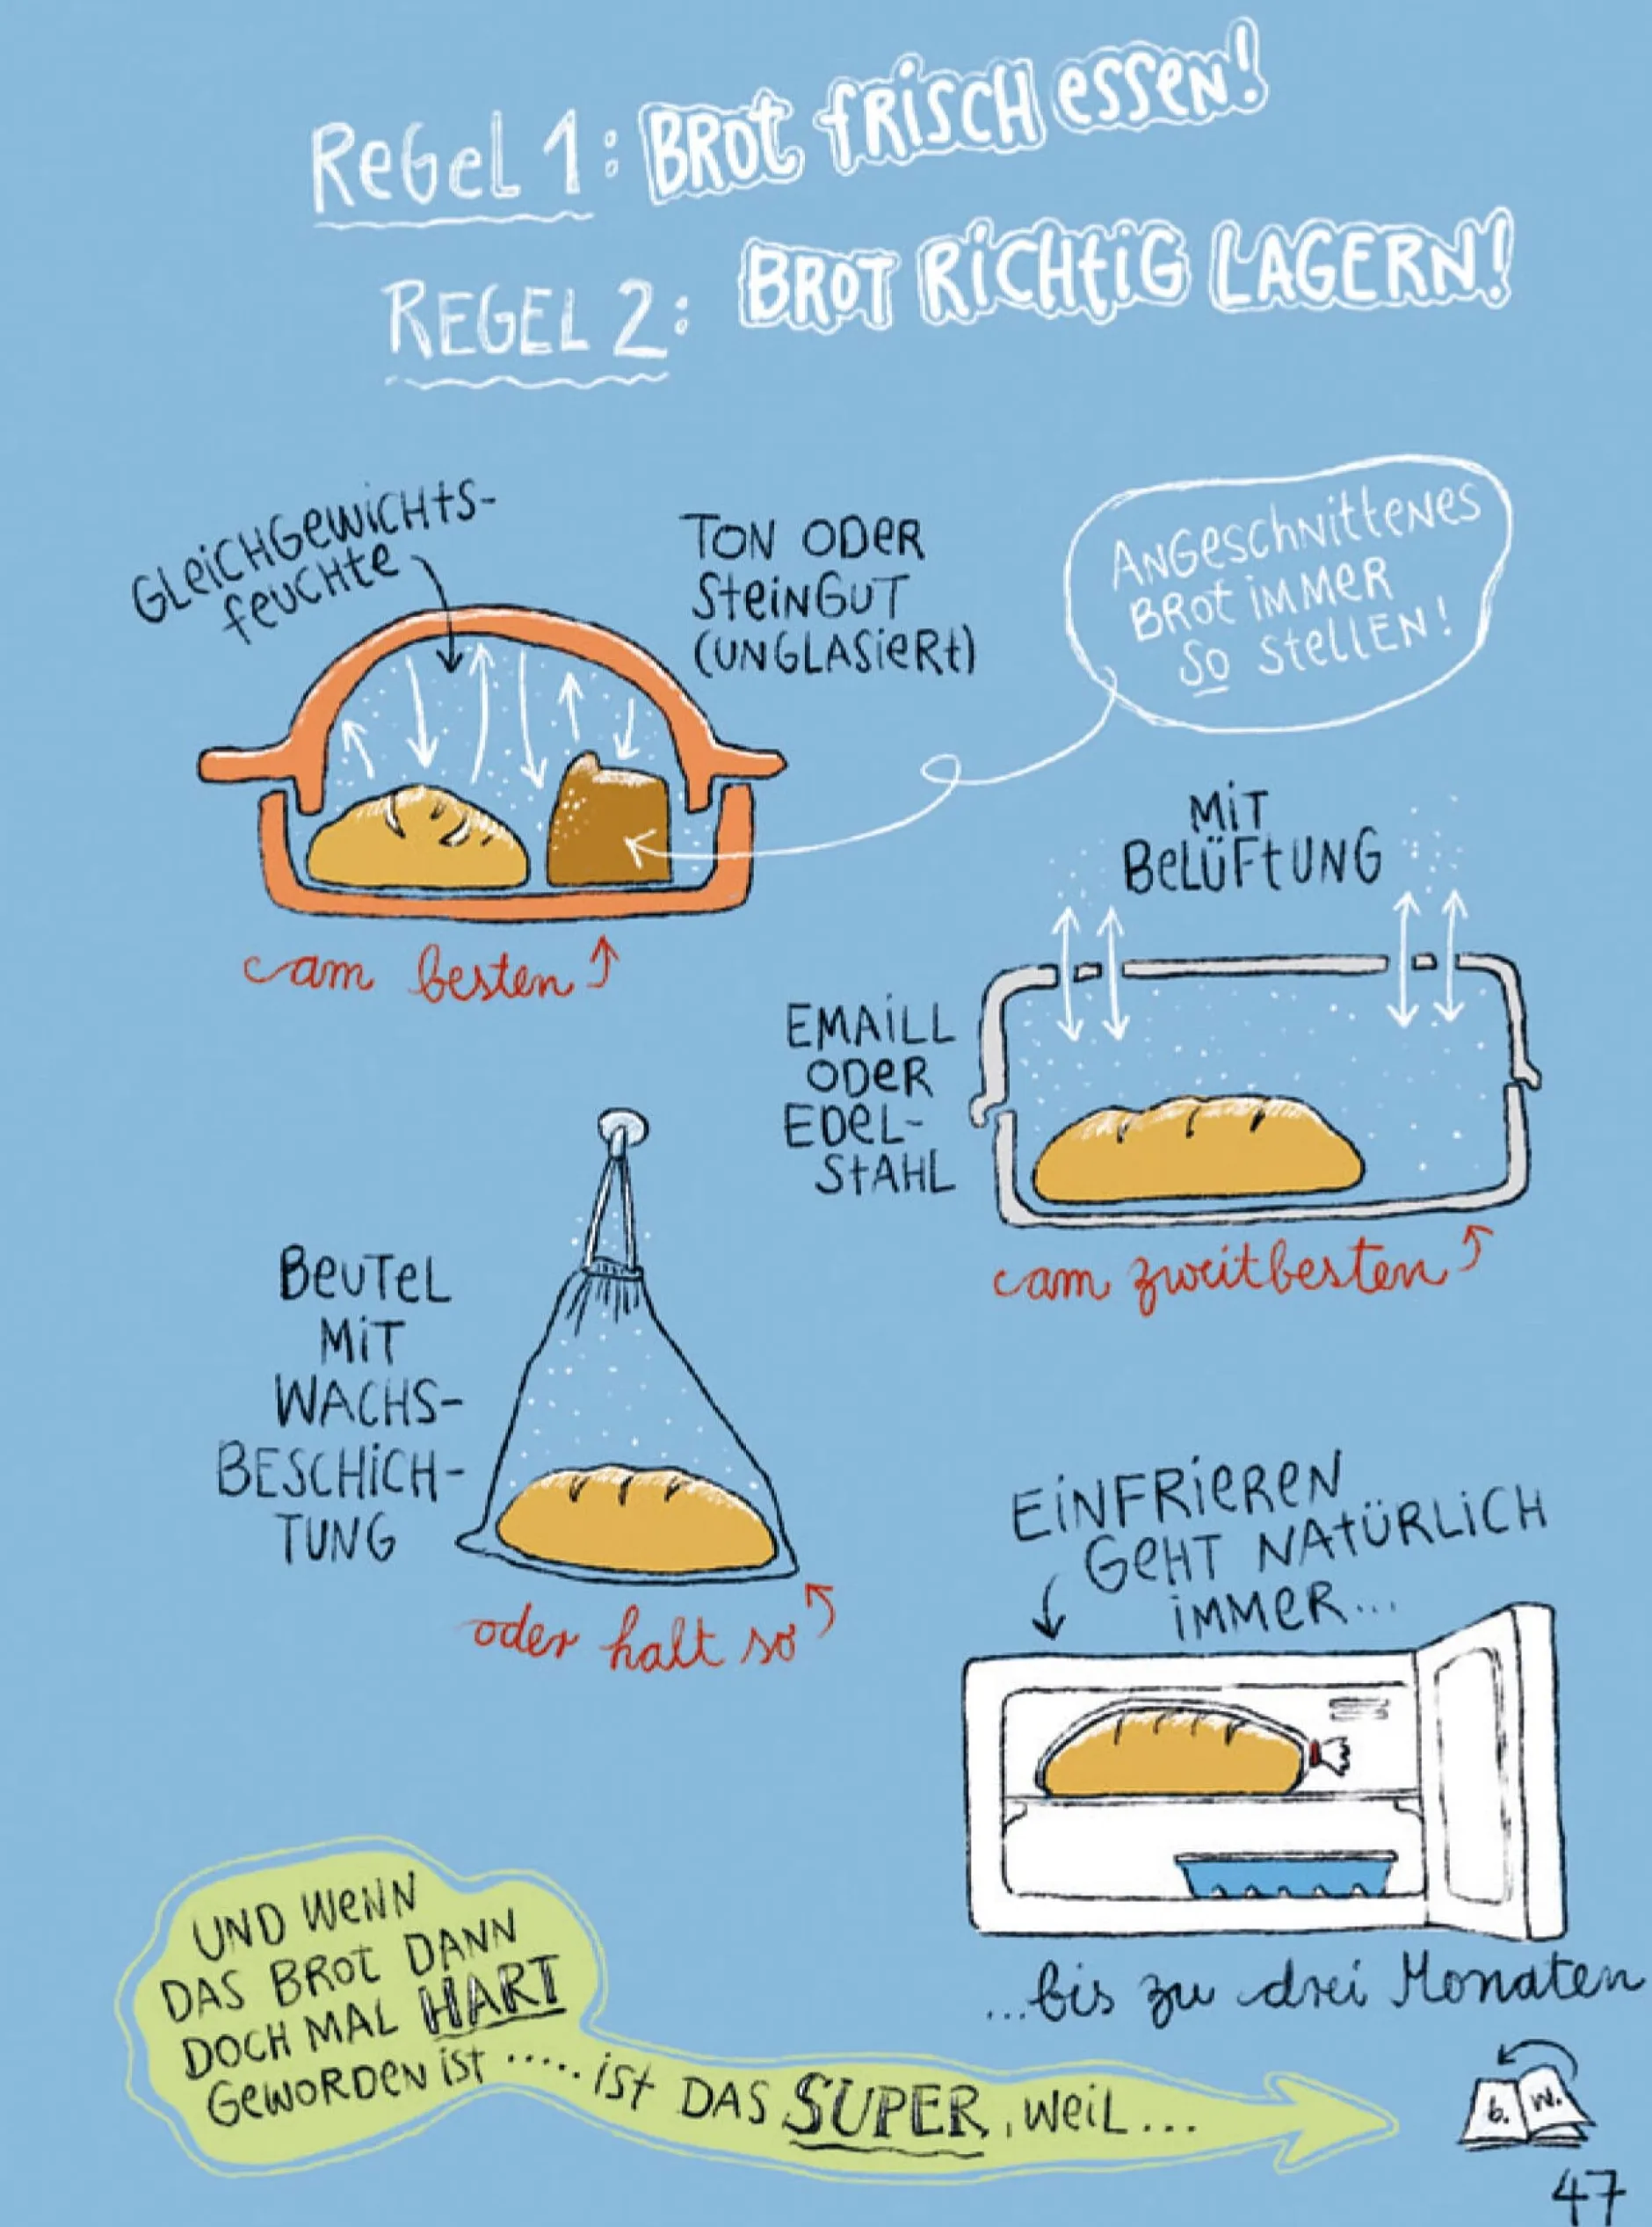 ReGeL 1: BROt fRiSCH essen!
REGEL 2: BROT RiCHtiG LAGERN!
GLeiCHGeWiCHtS-
feuCHte
TON ODeR
SteiNGUT
(UNGLASieRt)
ANGeSchNitteNes
BROt iMMeR
SO SteLLEN!
am besten
MiT
BeLÜFtUNG
EMAiLL
ODeR
EDeL-
StAHL
am zweitbesten
BeUTeL
MiT
WACHS-
BESCHiCH-
TUNG
oder halt so
EiNFRieREN
GeHT NAtÜRLiCH
iMMeR...
...bis zu drei Monaten
UND WeNN
DAS BROt DANN
DOCH MAL HART
GeWORDeN iST ..... ist DAS SUPER, WeiL...
b. w.
47